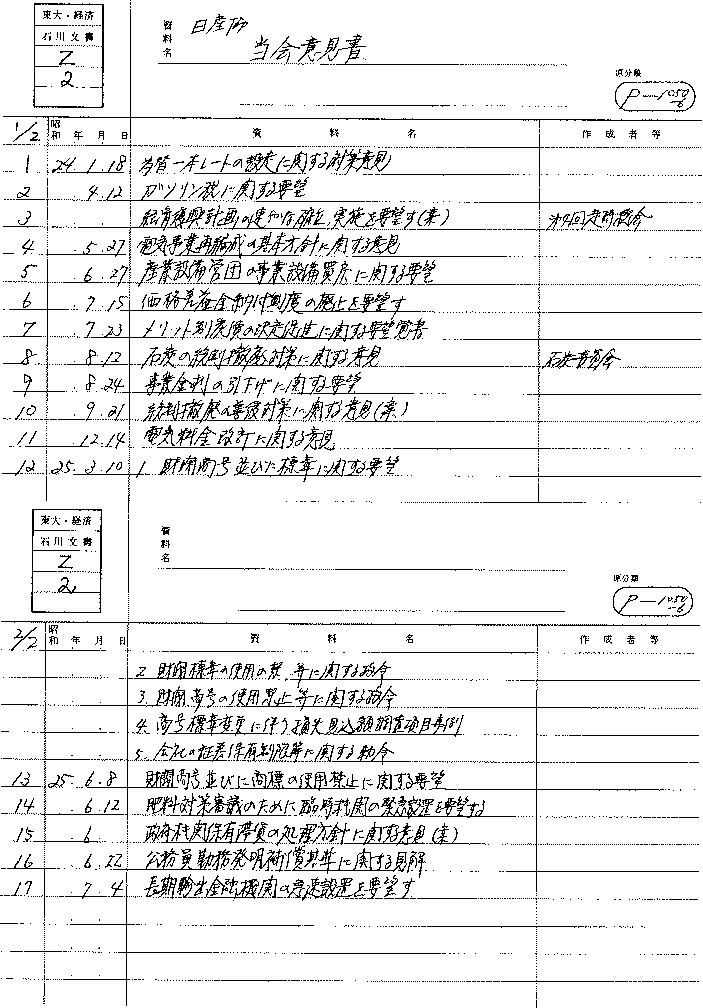 東大・経済
石川文書
Z
2
資料名 日産協
当会意見書
原分類
P-1050-6
1/2 昭和 年 月 日 資料名 作成者等
1 24.1.18 為替一本レートの設定に関する対策意見
2 4.12 ガソリン税に関する要望
3 経済復興計画の速かな確立、実施を要望す(案) 第4回定時総会
4 5.27 電気事業再編成の基本方針に関する意見
5 6.27 産業設備営団の事業設備買戻に関する要望
6 7.15 価格差益金納付制度の廃止を要望す
7 7.23 メリット制炭価の決定促進に関する要望覚書
8 8.12 石炭の統制撤廃対策に関する意見 石炭委員会
9 8.24 事業金利の引下げに関する要望
10 9.21 統制撤廃の善後対策に関する意見(案)
11 12.14 電気料金改訂に関する意見
12 25.3.10 1. 財閥商号並びに標章に関する要望
東大・経済
石川文書
Z
2
資料名
原分類
P-1050-6
2/2 昭和 年 月 日 資料名 作成者等
2. 財閥標章の使用の禁止等に関する政令
3. 財閥商号の使用禁止等に関する政令
4. 商号標章変更に伴う損失見込額調査項目事例
5. 会社の証券保有制限等に関する勅令
13 25.6.8 財閥商号並びに商標の使用禁止に関する要望
14 6.12 肥料対策審議のために臨時機関の緊急設置を要望する
15 6. 政府機関保有滞貨の処理方針に関する意見(案)
16 6.22 公務員勤務発明補償基準に関する見解
17 7.4 長期輸出金融機関の急速設置を要望す